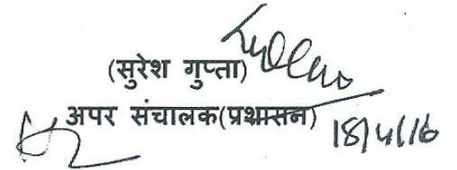 (सुरेश गुप्ता)
अपर संचालक(प्रशासन)
18/4/16